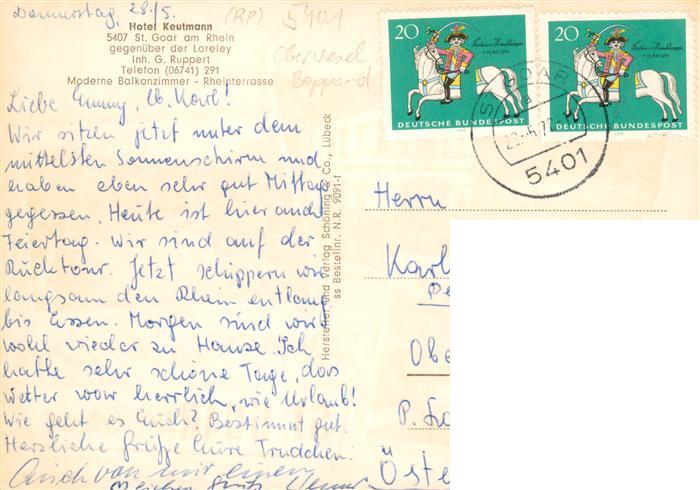 Donnerstag, 28./5.
(RP) 5401
Oberwesel
Boppard
Hotel Keutmann
5407 St. Goar am Rhein
gegenüber der Loreley
Inh. G. Ruppert
Telefon (06741) 291
Moderne Balkonzimmer - Rheinterrasse
Liebe Emmy, lb. Karl!
Wir sitzen jetzt unter dem
mittelsten Sonnenschirm und
haben eben sehr gut Mittag
gegessen. Heute ist hier auch
Feiertag. Wir sind auf der
Rücktour. Jetzt schippern wir
langsam den Rhein entlang
bis Essen. Morgen sind wir
wohl wieder zu Hause. Ich
hatte sehr schöne Tage, das
Wetter war herrlich, wie Urlaub!
Wie geht es Euch? Bestimmt gut.
Herzliche Grüße Eure Trudchen.
Auch von mir einen
Hersteller und Verlag Schöning & Co., Lübeck
ss Bestellnr. N.R. 9091-1
20
DEUTSCHE BUNDESPOST
20
DEUTSCHE BUNDESPOST
ST GOAR
a
5401
Herrn
Karl
Obe
Öste